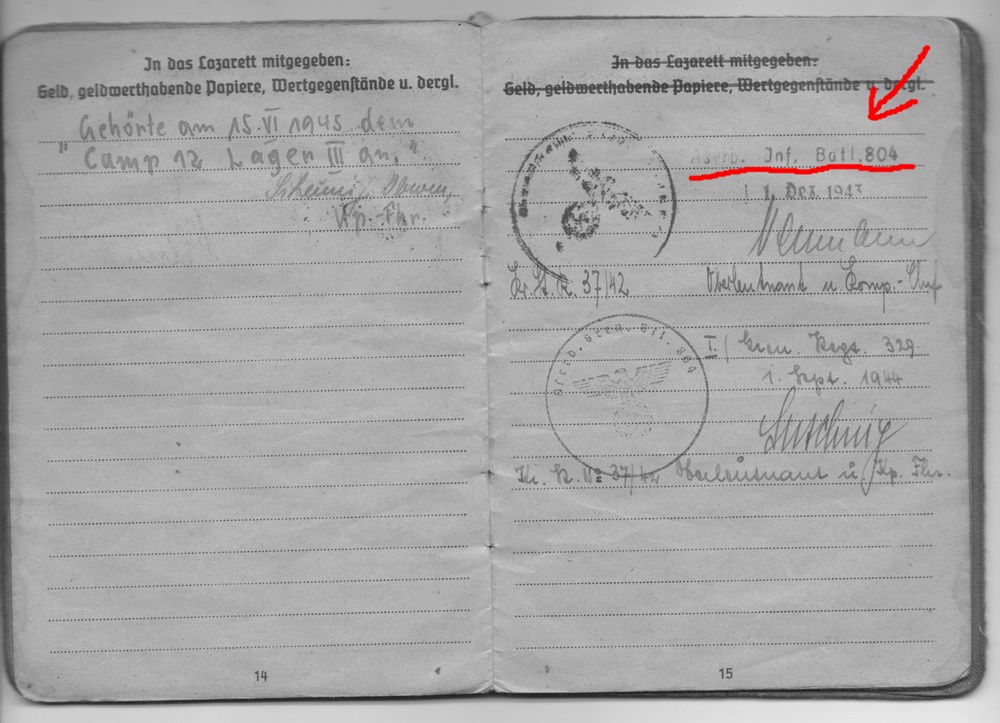 In das Lazarett mitgegeben:
Geld, geldwerthabende Papiere, Wertgegenstände u. dergl.
Gehörte am 15.VI 1945 dem
"Camp 12 Lager III an."
Kp.-Fhr.
14
In das Lazarett mitgegeben:
Geld, geldwerthabende Papiere, Wertgegenstände u. dergl.
Aserb. Inf. Batl. 804
1. Dez. 1943
Oberleutnant u. Komp.-Chef
Kr. St. R. 37/42
I./ Gren. Regt. 329
1. Sept. 1944
Kr. R. No 37/42 Oberleutnant u. Kp. Fhr.
15